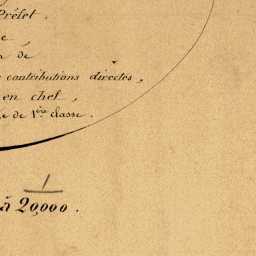 Préfet.
e
n de
contributions directes,
en chef,
e de 1ère classe.
1
à 20,000.